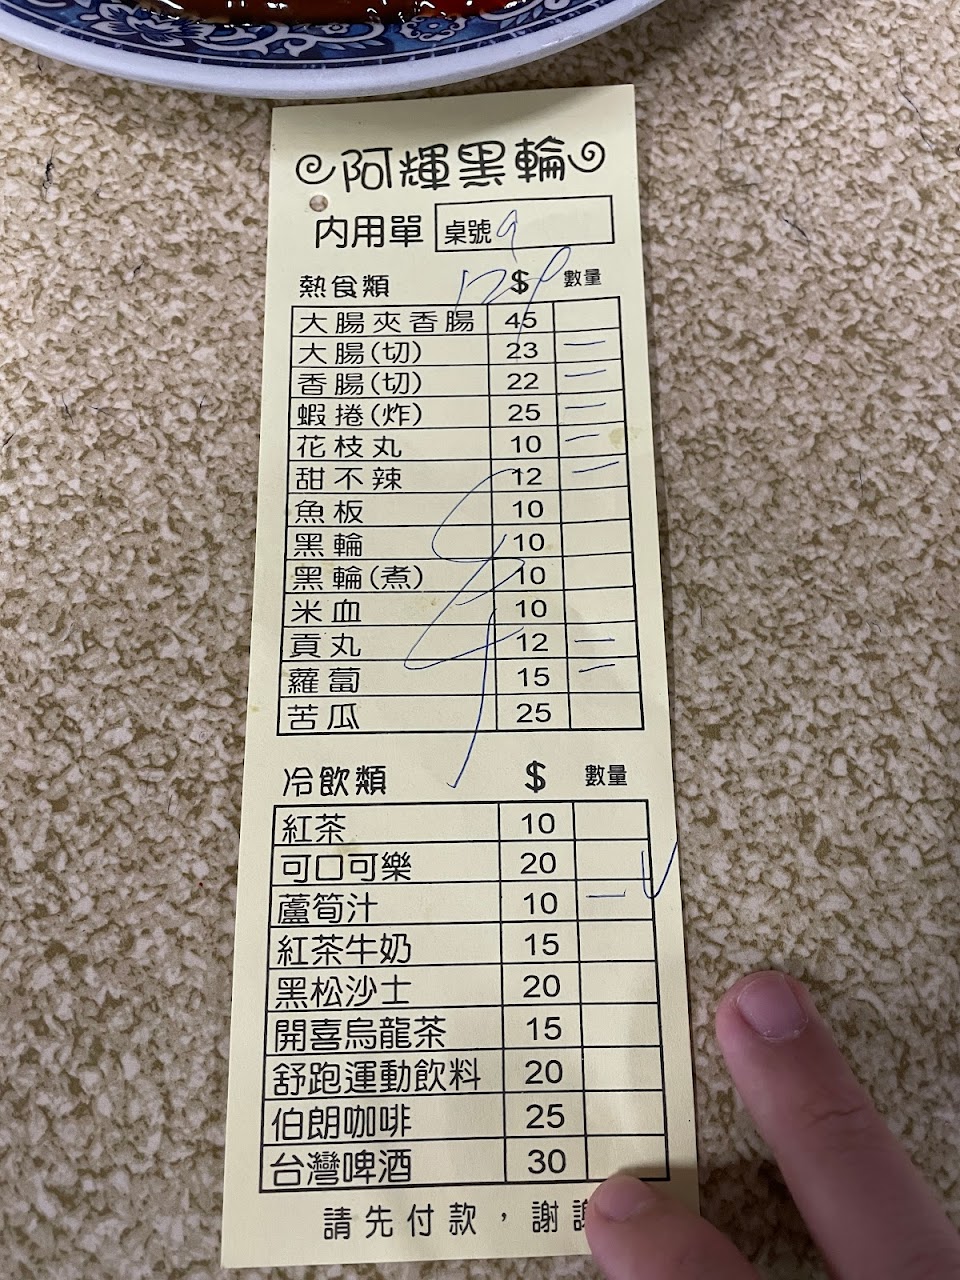 阿輝黑輪
內用單 桌號 9
129
熱食類 $ 數量
大腸夾香腸 45
大腸(切) 23 一
香腸(切) 22 一
蝦捲(炸) 25 一
花枝丸 10 一
甜不辣 12 一
魚板 10
黑輪 10
黑輪(煮) 10
米血 10
貢丸 12 一
蘿蔔 15 一
苦瓜 25
冷飲類 $ 數量
紅茶 10
可口可樂 20
蘆筍汁 10 一
紅茶牛奶 15
黑松沙士 20
開喜烏龍茶 15
舒跑運動飲料 20
伯朗咖啡 25
台灣啤酒 30
請先付款，謝